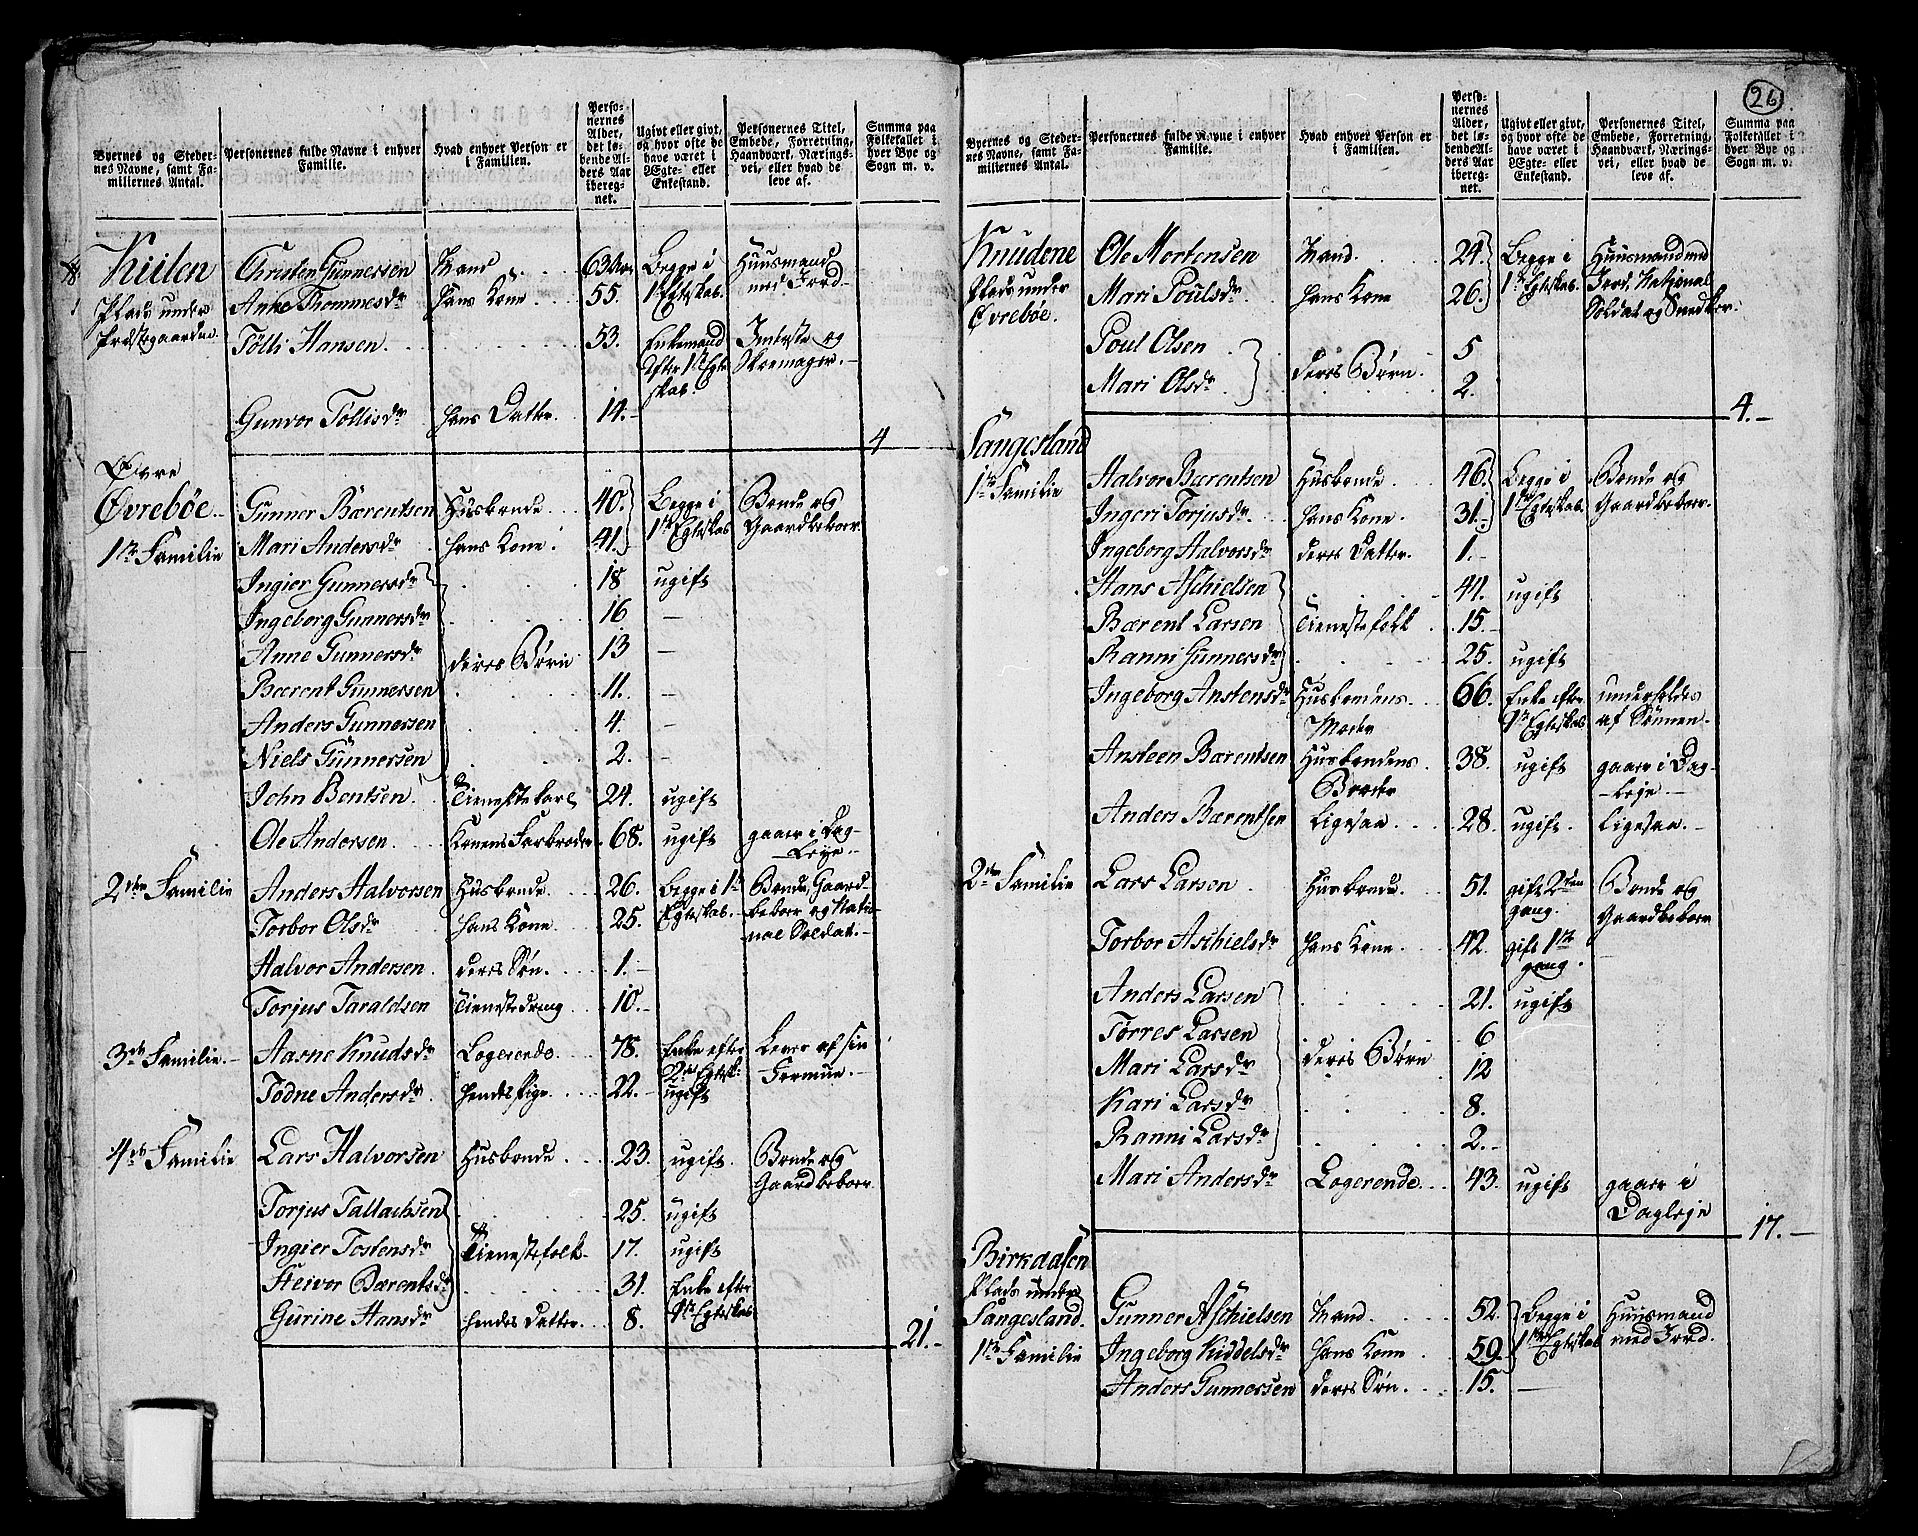 26
Byernes og Steder-
nes Navne, samt Fa-
miliernes Antal.
Personernes fulde Navne i enhver
Familie.
Hvad enhver Person er
i Familien.
Perso-
nernes
Alder,
det lø-
bende Al-
ders Aar
ibereg-
net.
Ugivt eller givt,
og hvor ofte de
have været i
Ægte- eller
Enkestand.
Personernes Titel,
Embede, Forretning,
Haandværk, Nærings-
vei, eller hvad de
leve af.
Summa paa
Folketallet i
hver Bye og
Sogn m. v.
Kiilen
Plads under
Præstegaarden
Christen Gunnersen Mand 63 Aar Begge i Huusmand
Anne Thommesdr hans Kone 55. 1 Egteskab. med Jord
Tölli Hansen 53. Enkemand Inderste og
efter 1ste Egte Skoemager.
skab.
Gunvor Töllisdr hans Datter 14.
4
Øvre
Øvrebøe
1ste Familie
Gunner Bærentsen Husbonde 40. Begge i Bonde og
Mari Andersdr hans Kone 41. 1ste Egteskab Gaardbeboer
Ingier Gunnersdr 18 ugift
Ingeborg Gunnersdr 16 —
Anne Gunnersdr deres Börn 13 —
Bærent Gunnersen 11. —
Anders Gunnersen 4. —
Niels Gunnersen 2. —
John Bentsen Tienestekarl 24. ugift
Ole Andersen Konens Farbroder 68. ugift gaaer i Dag-
Leje.
2den Familie Anders Halvorsen Husbonde 26. Begge i 1ste Bonde, Gaard-
Torbor Olsdr hans Kone 25. Egteskab. beboer og Natio-
nal Soldat.
Halvor Andersen deres Sön 1.
Torjus Taraldsen Tienestedreng 10.
3de Familie Aasne Knudsdr Logerende 78. Enke efter Lever af sin
2det Egtesk: Formue.
Todne Andersdr hendes Pige 22. ugift
4de Familie Lars Halvorsen Husbonde 23. ugift Bonde og
Gaardbeboer
Torjus Tallachsen 25. ugift
Ingier Tostensdr Tienestefolk 17. ugift
Steivor Bærentsdr 31. Enke efter
Gurine Hansdr hendes Datter 8. 1ste Egteskab
21.
Byernes og Steder-
nes Navne, samt Fa-
miliernes Antal.
Personernes fulde Navne i enhver
Familie.
Hvad enhver Person er
i Familien.
Perso-
nernes
Alder,
det lø-
bende Al-
ders Aar
ibereg-
net.
Ugivt eller givt,
og hvor ofte de
have været i
Ægte- eller
Enkestand.
Personernes Titel,
Embede, Forretning,
Haandværk, Nærings-
vei, eller hvad de
leve af.
Summa paa
Folketallet i
hver Bye og
Sogn m. v.
Knudene
Plads under
Øvrebøe.
Ole Mortensen Mand 24. Begge i Huusmand med
Mari Poulsdr hans Kone 26. 1ste Egteskab. Jord, National
Soldat og Snedker.
Poul Olsen 5
Mari Olsdr deres Börn 2.
4.
Langesland
1ste Familie
Halvor Bærentsen Husbonde 46. Begge i Bonde og
Ingeri Torjusdr hans Kone 31. 1ste Egteskab. Gaardbeboer.
Ingeborg Halvorsdr deres Datter 1.
Hans Aschielsen 41. ugift
Bærent Larsen Tienestefolk 15.
Ranni Gunnersdr 25. ugift
Ingeborg Anstensdr Husbondens 66. Enke efter underholdes
Moder 1ste Egteskab af Sönnen.
Ansteen Bærentsen Husbondens 38. ugift gaaer i Dag-
Broder Leje.
Anders Bærentsen Ligesaa 28. ugift. Ligesaa.
2den Familie Lars Larsen Husbonde 51. gift 2den Bonde og
gang. Gaardbeboer
Torbor Aschielsdr hans Kone 42. gift 1ste
gang.
Anders Larsen 21. ugift
Torres Larsen 6
Mari Larsdr deres Börn 12
Kari Larsdr 8.
Ranni Larsdr 2.
Mari Andersdr Logerende 43. ugift gaaer i
Dagleje
17.
Birkaasen
Plads under
Langesland.
1ste Familie
Gunner Aschielsen Mand 52. Begge i Huusmand
Ingeborg Kiddelsdr hans Kone 59 1ste Egteskab med Jord.
Anders Gunnersen deres Sön. 15. —